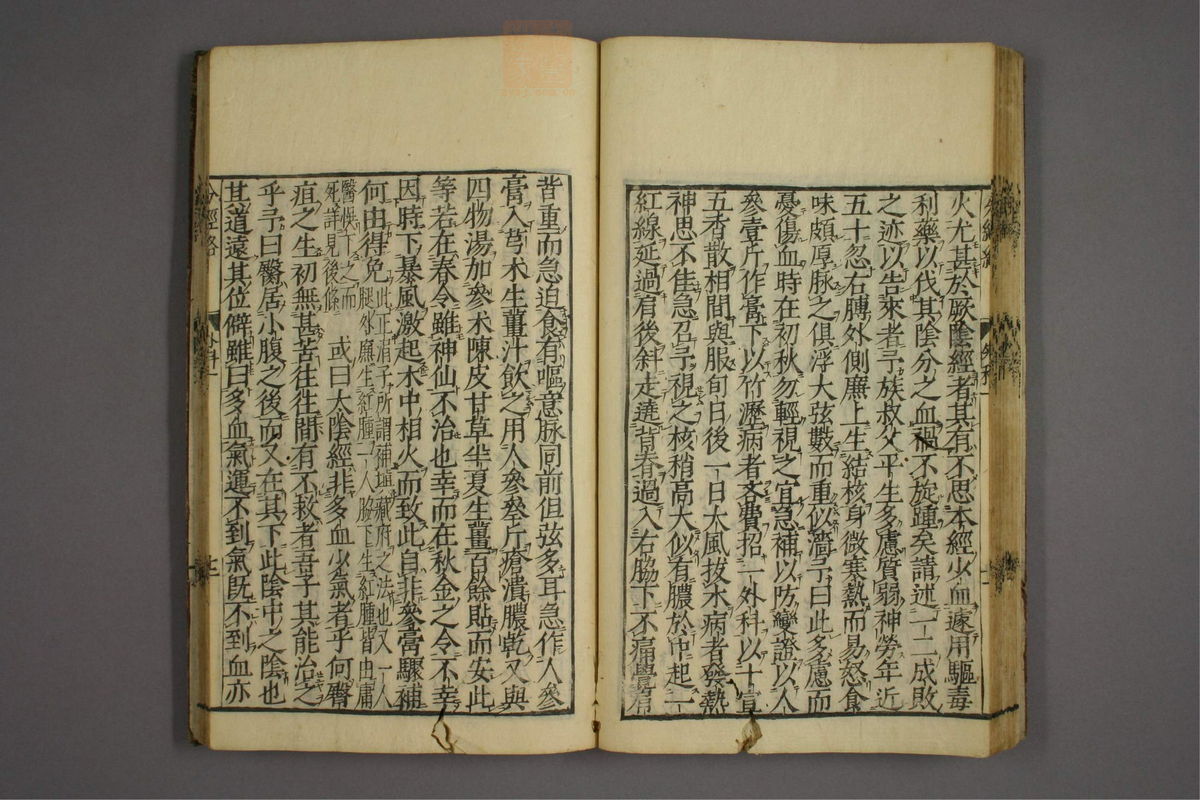 火尤甚於厥陰經者其有不思本經少血遽用驅毒
利藥以伐其陰分之血禍不旋踵矣請述一二成敗
之迹以告來者予族叔父平生多慮質弱神勞年近
五十忽右膊外側廉上生結核身微寒熱而易怒食
味頗厚脉之俱浮大弦數而重似濇予曰此多慮而
憂傷血時在初秋勿輕視之宜急補以防變證以人
參壹斤作膏下以竹瀝病者吝費招一外科以十宣
五香散相間與服旬日後一日大風拔木病者發熱
神思不佳急召予視之核稍高大似有膿於中起一
紅線延過肩後斜走遶背脊過入右脇下不痛覺肩
背重而急迫食有嘔意脉同前但弦多耳急作人參
膏入芎术生薑汁飲之用人參參斤瘡潰膿乾又與
四物湯加參术陳皮甘草半夏生薑百餘貼而安此
等若在春令雖神仙不治也幸而在秋金之令不幸
因時下暴風激起木中相火而致此自非參膏驟補
何由得免 此正涓子所謂神在藏府之法也又一人
腿外廉生紅腫一人脇下生紅腫皆由庸
醫快下之而
死詳見後條 或曰太陰經非多血少氣者乎何臀
疽之生初無甚苦往往間有不救者吾子其能治之
乎予曰臀居小腹之後而又在其下此陰中之陰也
其道遠其位僻雖曰多血氣運不到氣既不到血亦
分經絡
外科一